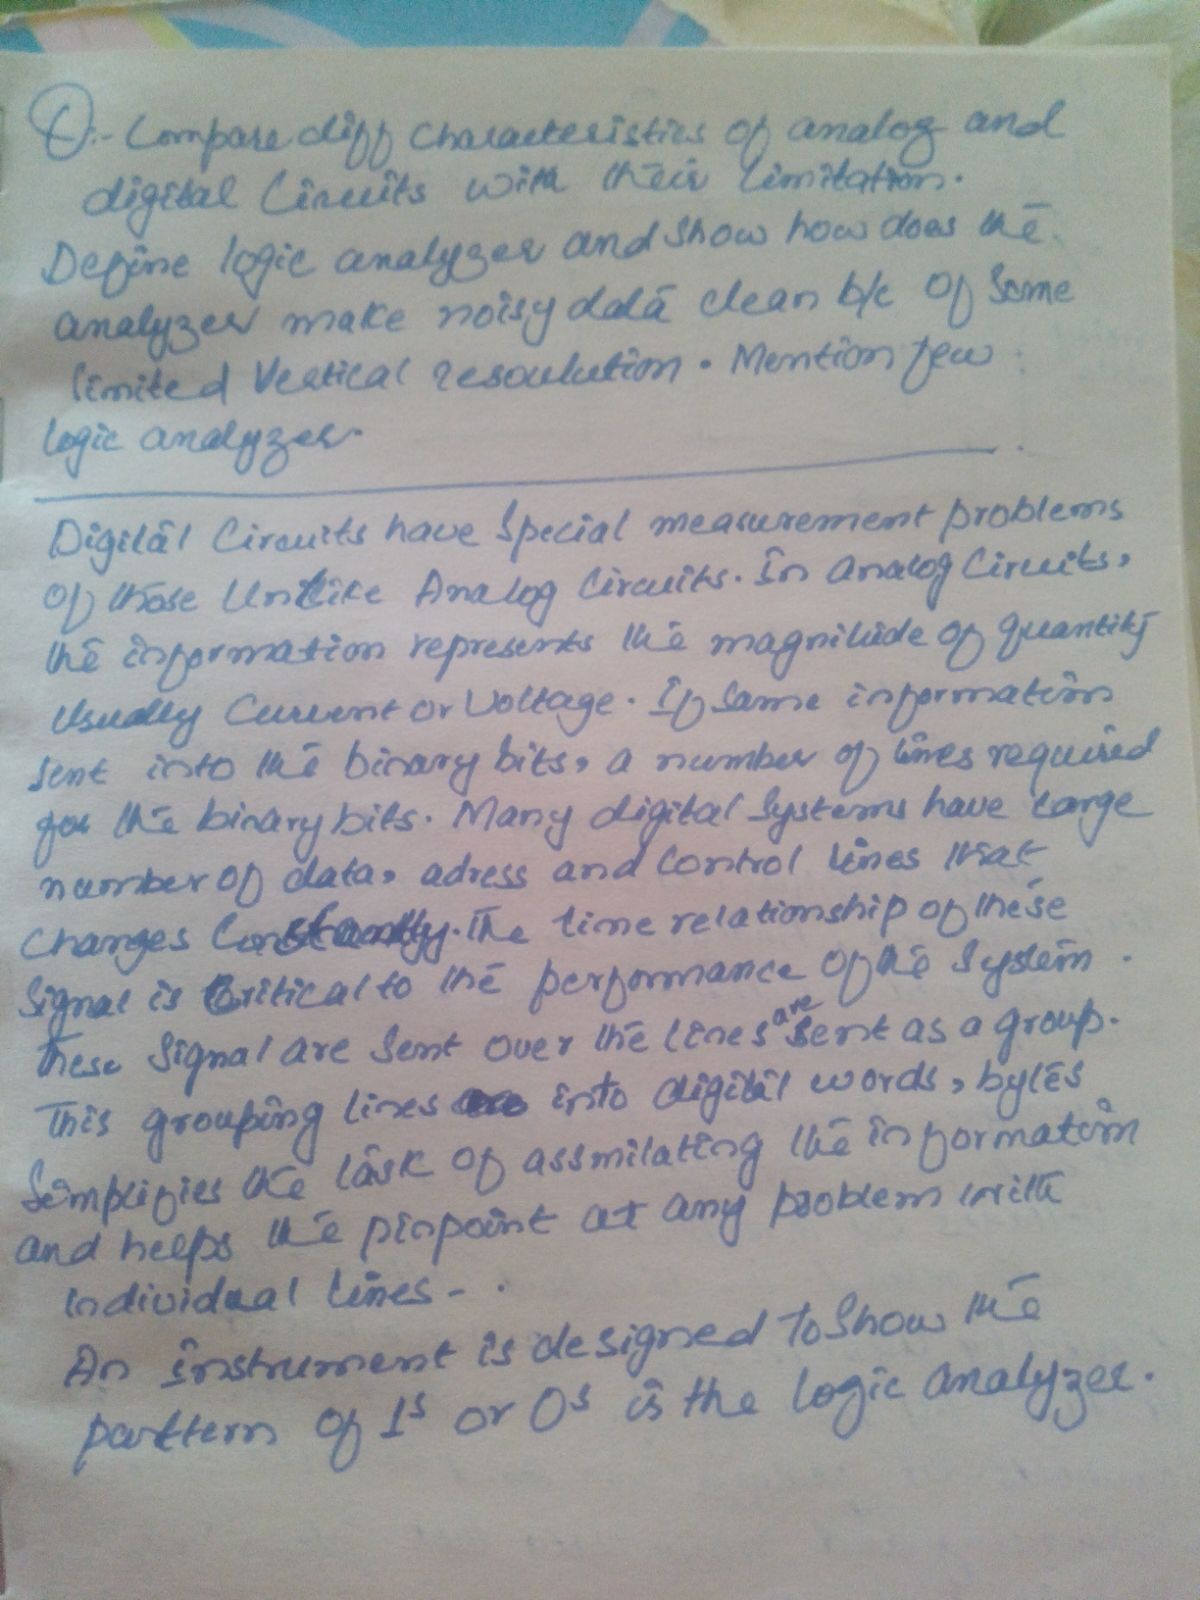 Q:- Compare diff characteristics of analog and
digital Circuits with their limitation.
Define logic analyzer and show how does the
analyzer make noisy data clean b/c of some
limited Vertical resoulution. Mention few
logic analyzer.
Digital Circuits have special measurement problems
of those Unlike Analog Circuits. In analog Circuits,
the information represents the magnitude of quantity
usually Current or Voltage. If same information
sent into the binary bits, a number of lines required
for the binary bits. Many digital systems have large
number of data, adress and control lines that
changes Constantly. The time relationship of these
signal is Critical to the performance of the system.
these signal are sent over the lines are sent as a group.
This grouping lines into digital words, bytes
Simplifies the task of assmilating the information
and helps the pinpoint at any problem with
individual lines - .
An instrument is designed to show the
pattern of 1s or 0s is the logic analyzer.